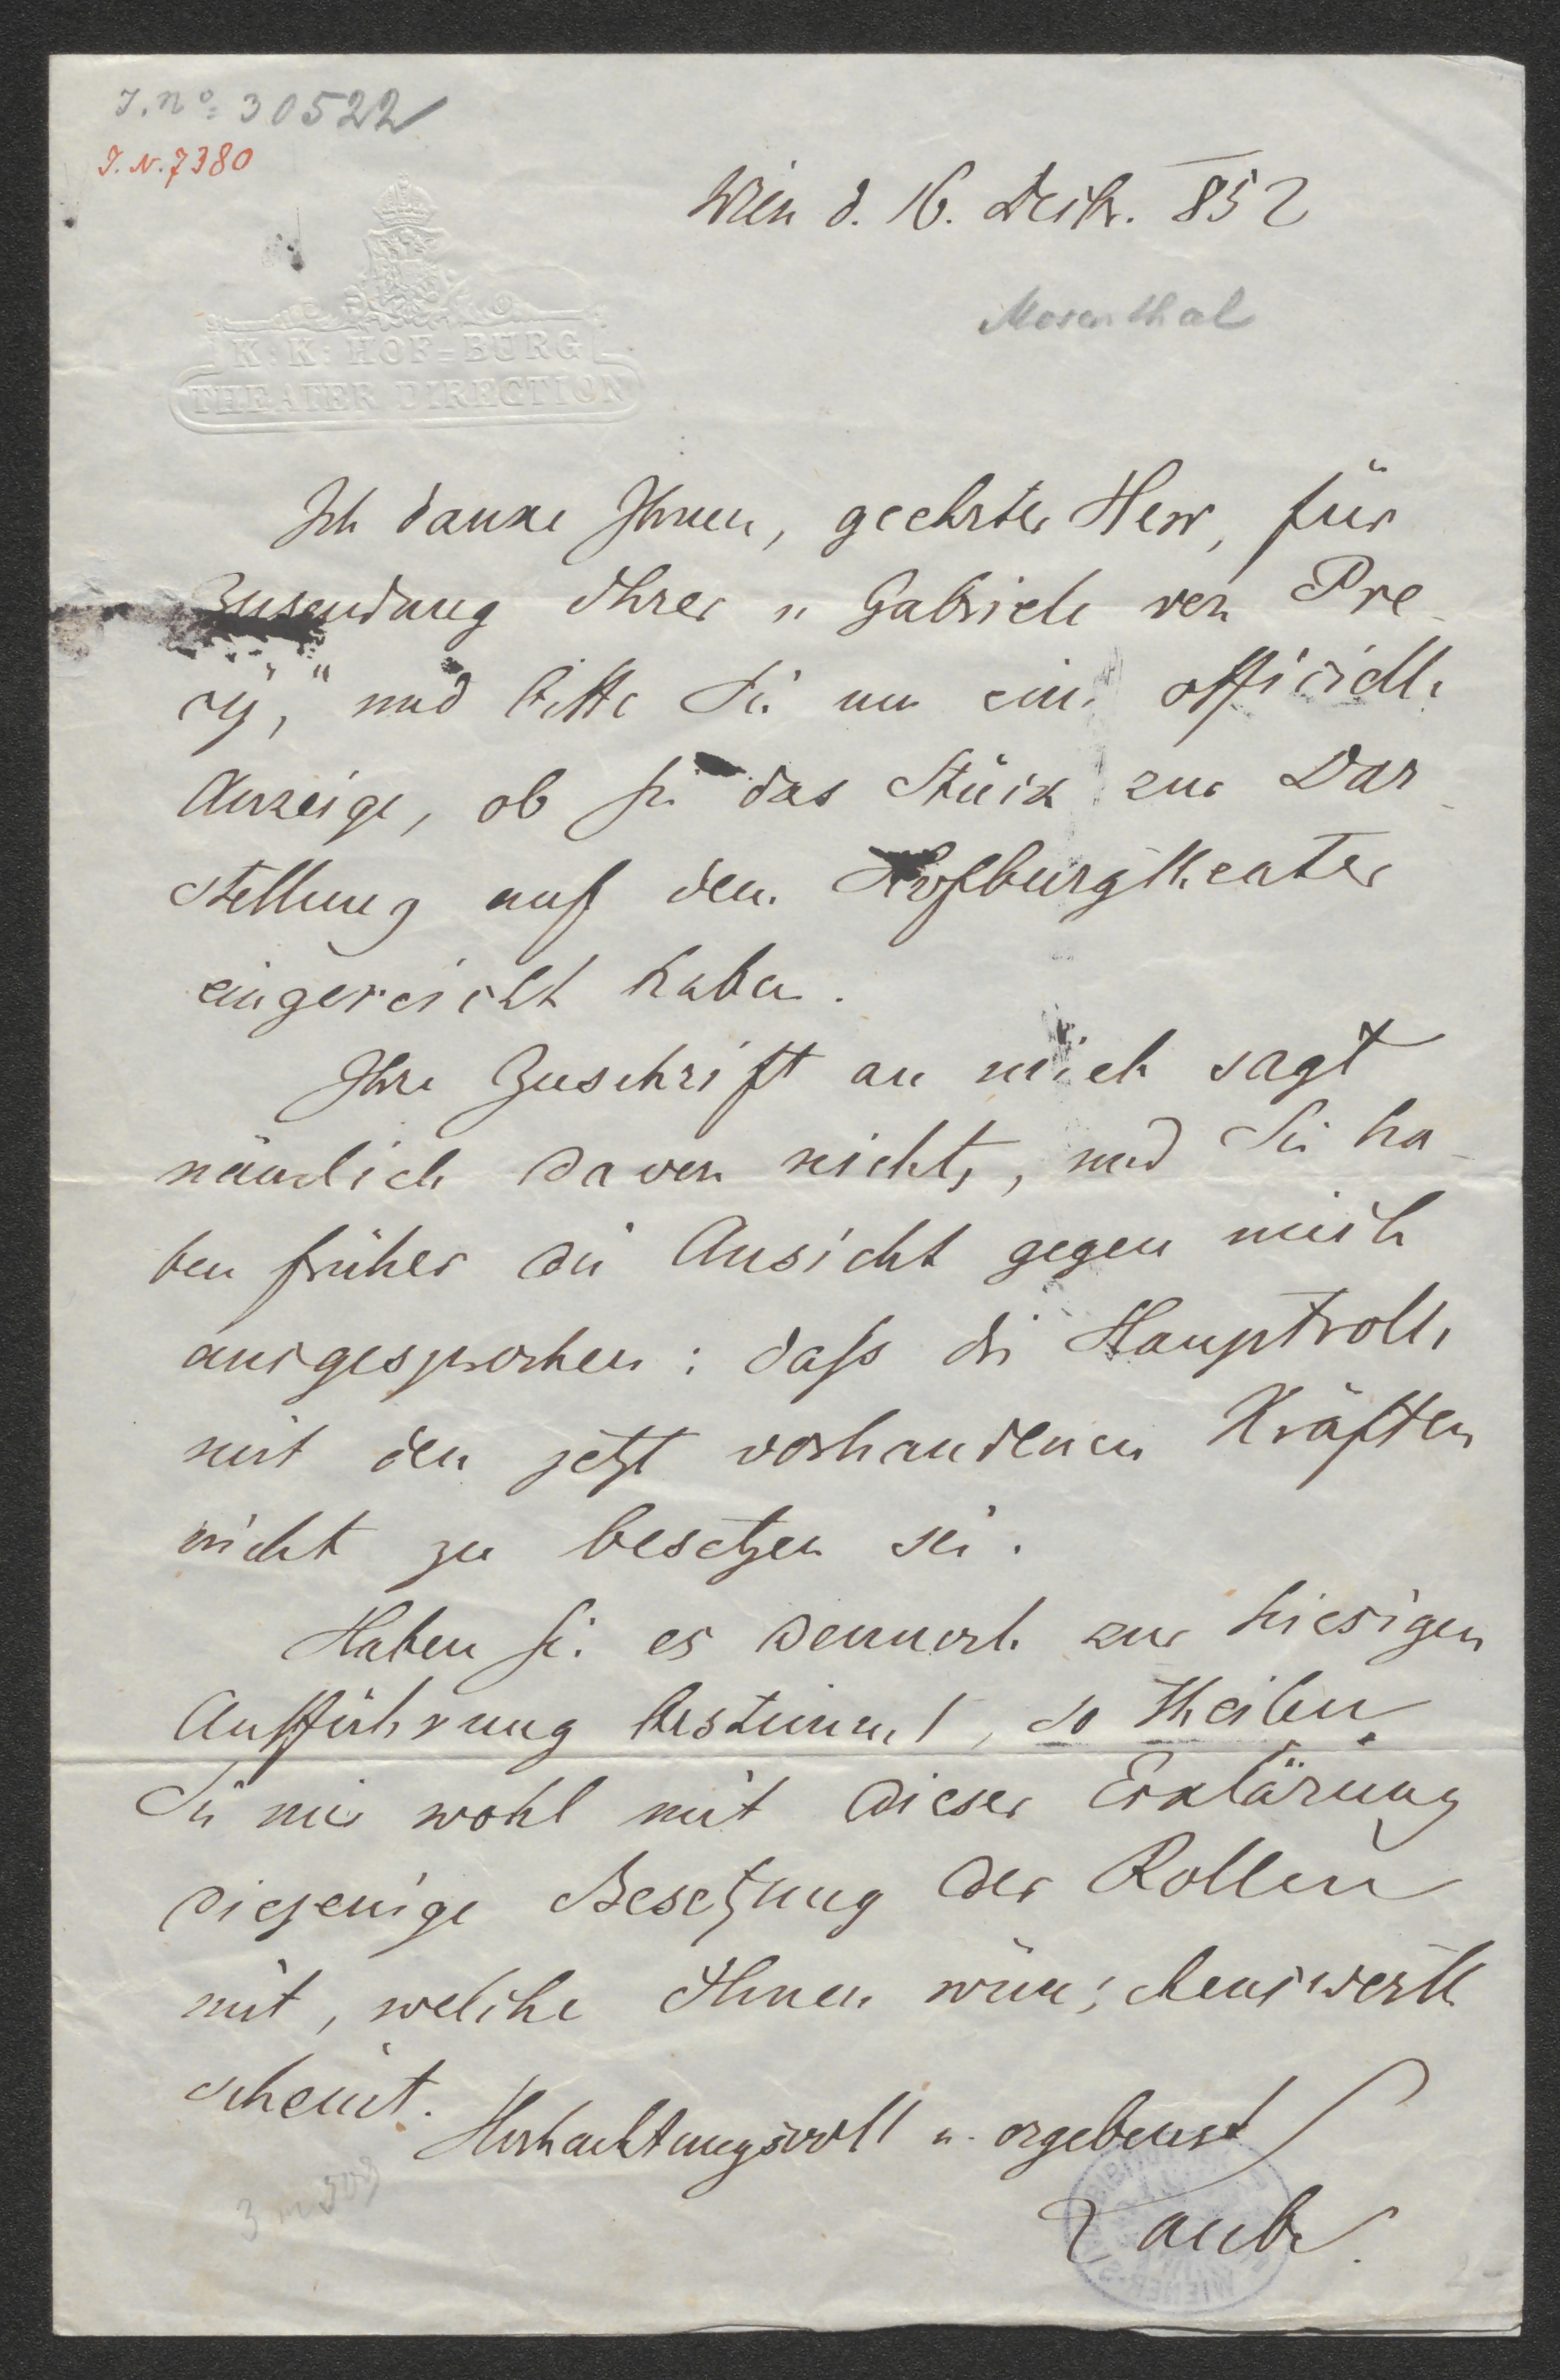 J. No: 30522
J. N. 7380
Wien d. 16. Dezbr. 852
Mosenthal
K: K: HOF-BURG
THEATER DIRECTION
Ich danke Ihnen, geehrter Herr, für
Zusendung Ihrer „Gabriele von Pre-
cy," und bitte Sie um eine officielle
Anzeige, ob Sie das Stück zur Dar-
stellung auf dem Hofburgtheater
eingereicht haben.
Ihre Zuschrift an mich sagt
nämlich davon nichts, und Sie ha-
ben früher die Ansicht gegen mich
ausgesprochen: daß die Hauptrolle
mit den jetzt vorhandenen Kräften
nicht zu besetzen sei.
Haben Sie es dennoch zur hiesigen
Aufführung bestimmt, so theilen
Sie mir wohl mit dieser Erklärung
diejenige Besetzung der Rollen
mit, welche Ihnen wünschenswerth
scheint.
Hochachtungsvoll u. ergebenst
Laube.